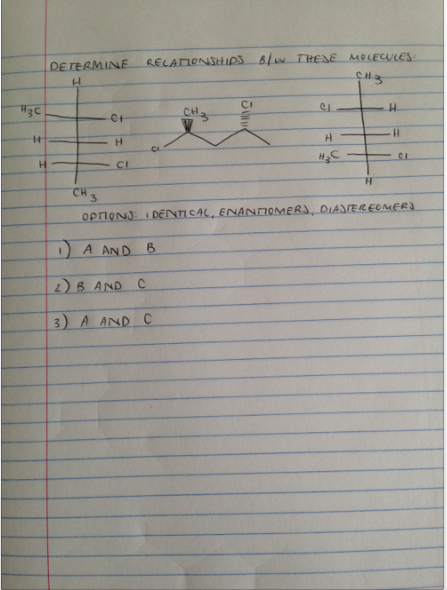 DETERMINE RELATIONSHIPS B/W THESE MOLECULES:
H
H3C Cl
H H
H Cl
CH3
CH3 Cl
Cl
CH3
Cl H
H H
H3C Cl
H
OPTIONS: IDENTICAL, ENANTIOMERS, DIASTEREOMERS
1) A AND B
2) B AND C
3) A AND C